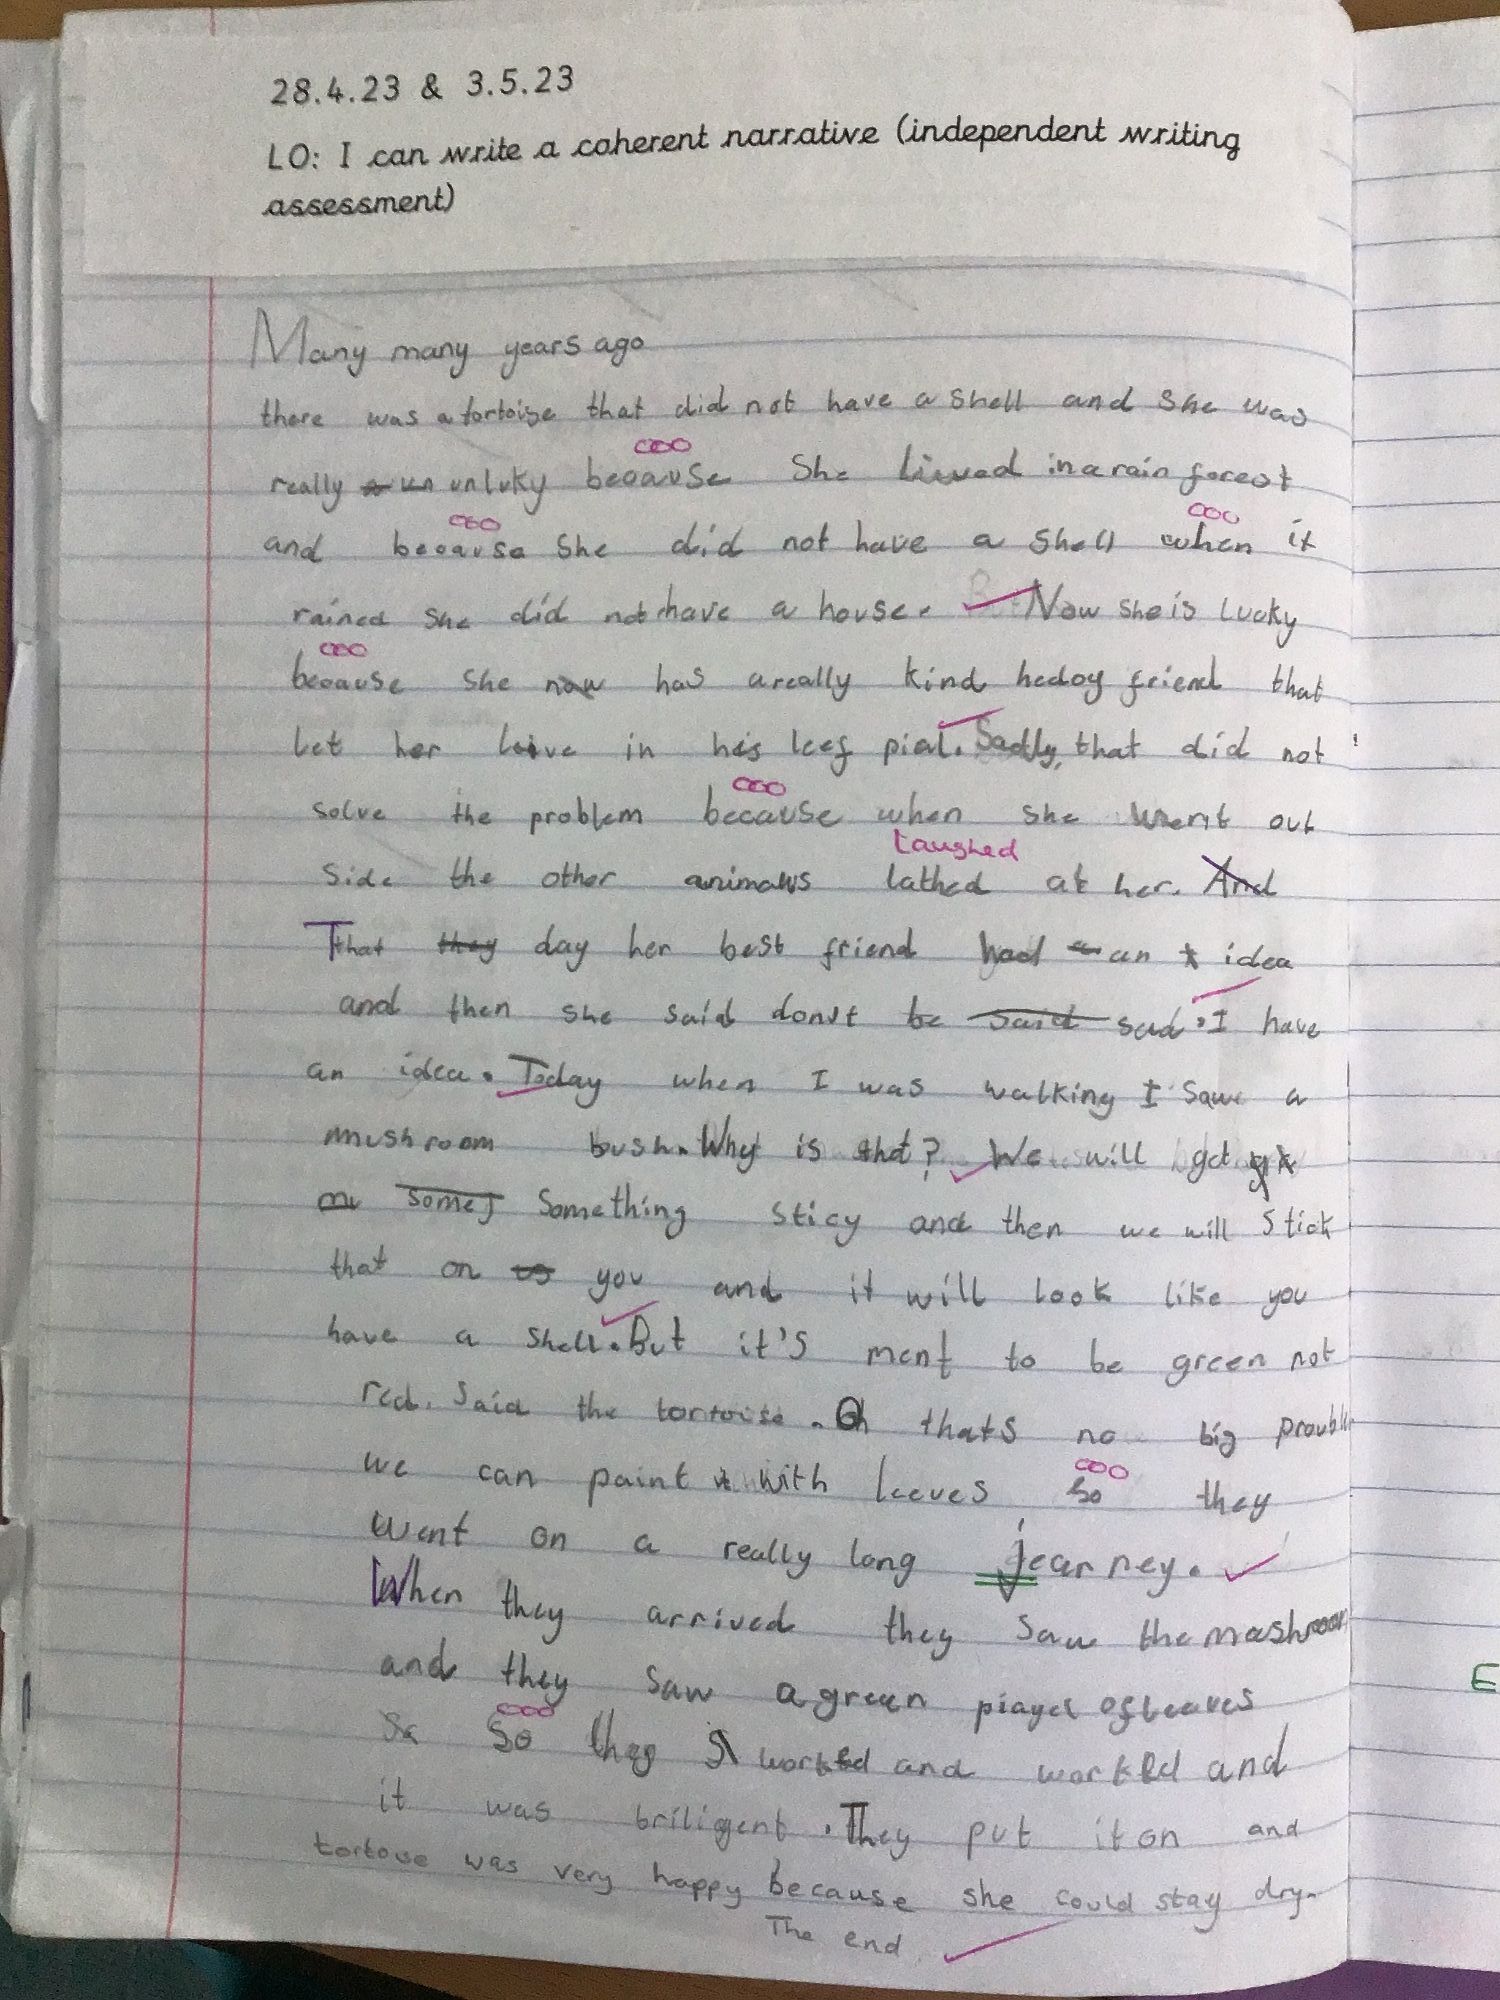 28.4.23 & 3.5.23
LO: I can write a coherent narrative (independent writing
assessment)
Many many years ago
there was a tortoise that did not have a shell and she was
really un unluky because She lived in a rain forest
and because She did not have a shell when it
rained she did not have a house. Now she is lucky
because she now has a really kind hedog friend that
let her live in his leef pial. Sadly, that did not
solve the problem because when she went out
Laughed
side the other animals lathed at her. And
That they day her best friend had a an idea
and then she said don't be said sad. I have
an idea. Today when I was walking I saw a
mushroom bush. Why is that? We will get
some something sticy and then we will stick
that on us you and it will look like you
have a shell. But it's ment to be green not
red. Said the tortoise. Oh thats no big
we can paint it with leeves so they
went on a really long jearney.
When they arrived they saw the mashroom
and they saw a green piayel of leaves
So So they worked and worked and
it was briligent. They put it on and
tortoise was very happy because she could stay dry.
The end.
E